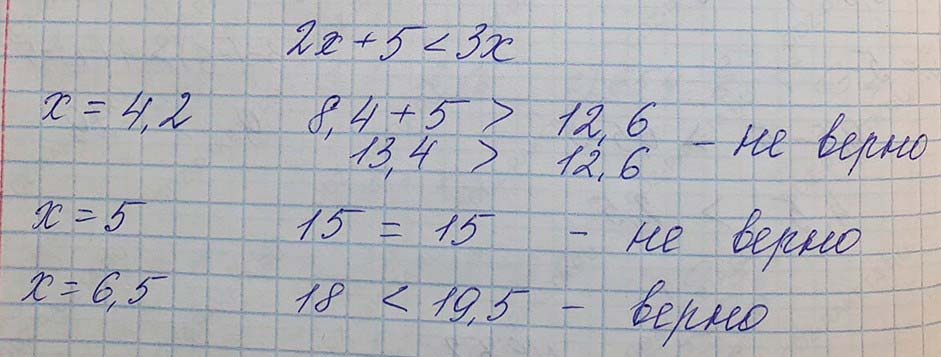 2x + 5 < 3x
x = 4,2 8,4 + 5 > 12,6
13,4 > 12,6 - не верно
x = 5 15 = 15 - не верно
x = 6,5 18 < 19,5 - верно